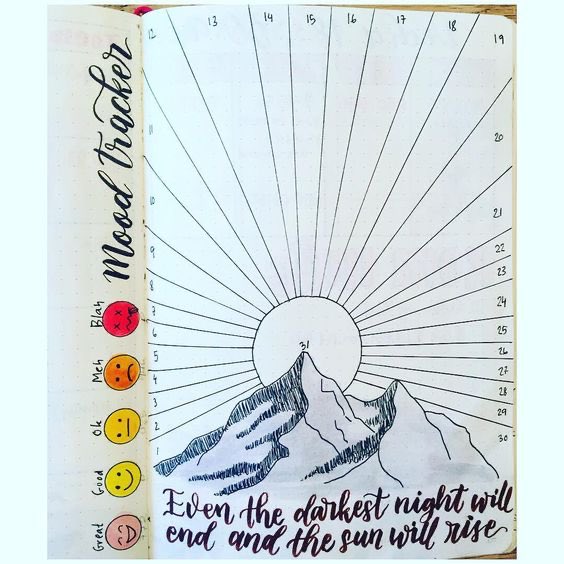 Mood tracker
Blah
Meh
Ok
Good
Great
1
2
3
4
5
6
7
8
9
10
11
12
13
14
15
16
17
18
19
20
21
22
23
24
25
26
27
28
29
30
31
Even the darkest night will
end and the sun will rise